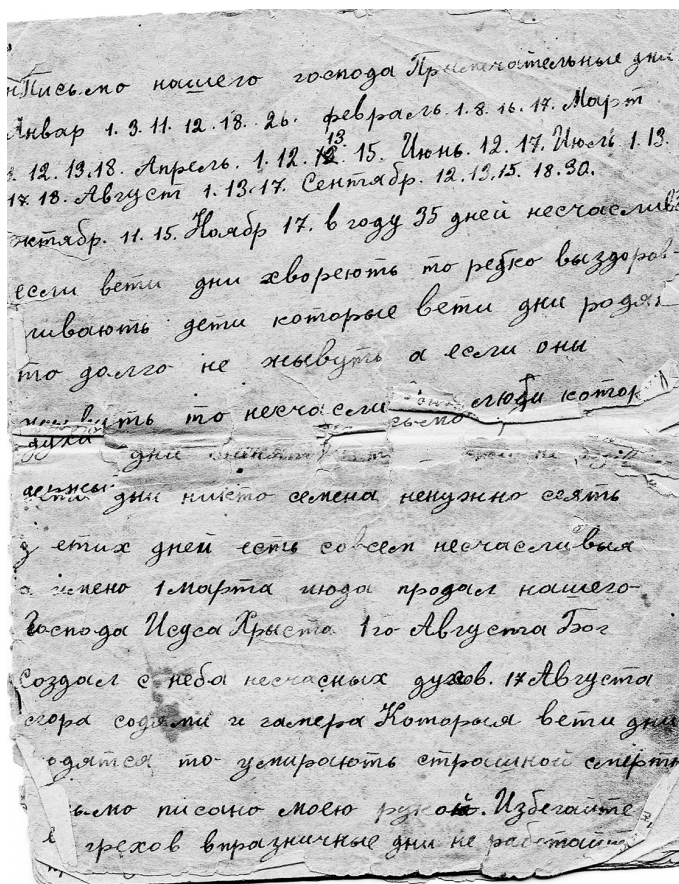 Письмо нашего господа Примечательные дни
Январ 1. 3. 11. 12. 18. 26. февраль. 1. 8. 16. 17. Март
12. 13. 18. Апрель. 1. 12. 13 15. Июнь. 12. 17. Июль 1. 13.
17. 18. Август 1. 13. 17. Сентябр. 12. 13. 15. 18. 30.
октябр. 11. 15. Ноябр 17. в году 35 дней несчасливы
если вети дни хвореють то редко выздорав-
ливають дети которые вети дни родят
то долго не жывуть а если оны
жывуть то несчасли люди котор
духа дни
дни никто семена ненужно сеять
з етих дней есть совсем несчасливыя
а имено 1 марта июда продал нашего
Господа Исуса Хрыста 1го Августа Бог
создал с неба несчасных духов. 17 Августа
згора содоми и гамера Которыя вети дни
родятся то умирають страшной смерть
сьмо писано моею рукой. Избегайте
грехов впразничные дни не работайте